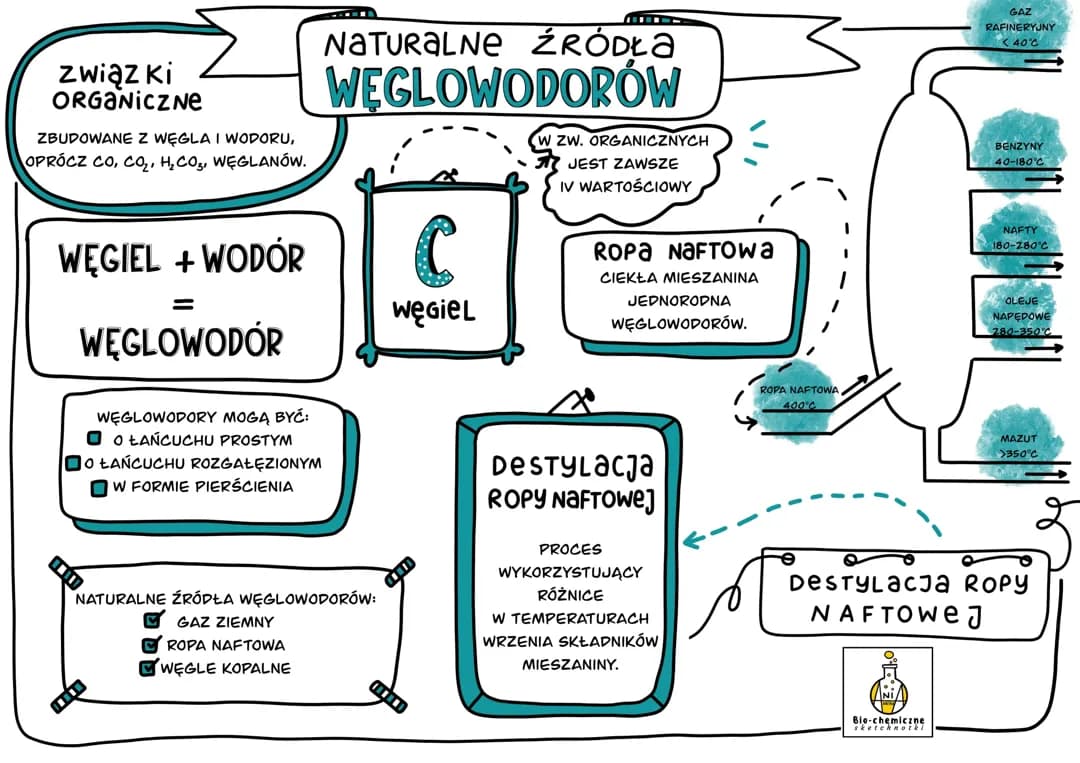 NATURALNE ŹRÓDŁA
WĘGLOWODORÓW
ZWIĄZKI
ORGANICZNE
ZBUDOWANE Z WĘGLA I WODORU,
OPRÓCZ CO, CO₂, H₂CO₃, WĘGLANÓW.
WĘGIEL + WODÓR
=
WĘGLOWODÓR
C
WĘGIEL
W ZW. ORGANICZNYCH
JEST ZAWSZE
IV WARTOŚCIOWY
ROPA NAFTOWA
CIEKŁA MIESZANINA
JEDNORODNA
WĘGLOWODORÓW.
WĘGLOWODORY MOGĄ BYĆ:
O ŁAŃCUCHU PROSTYM
O ŁAŃCUCHU ROZGAŁĘZIONYM
W FORMIE PIERŚCIENIA
NATURALNE ŹRÓDŁA WĘGLOWODORÓW:
GAZ ZIEMNY
ROPA NAFTOWA
WĘGLE KOPALNE
DESTYLACJA
ROPY NAFTOWEJ
PROCES
WYKORZYSTUJĄCY
RÓŻNICE
W TEMPERATURACH
WRZENIA SKŁADNIKÓW
MIESZANINY.
GAZ
RAFINERYJNY
< 40°C
BENZYNY
40-180°C
NAFTY
180-280°C
OLEJE
NAPĘDOWE
280-350°C
ROPA NAFTOWA
400°C
MAZUT
>350°C
DESTYLACJA ROPY
NAFTOWEJ
NI
Bio-chemiczne
sketchnotki